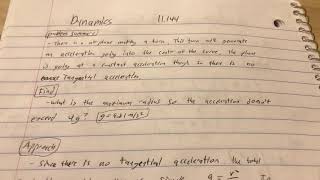 Dynamics 11.144
Problem Summary
- There is a plane making a turn. This turn will generate
an acceleration going into the center of the curve, the plane
is going at a constant acceleration though so there is no
tangential acceleration.
Find
- what is the maximum radius so the acceleration doesn't
exceed 4g? [g=9.81 m/s²]
Approach
- since there is no tangential acceleration the total